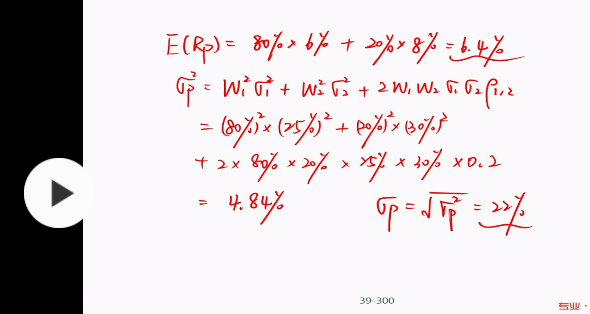 E(Rp) = 80% × 6% + 20% × 8% = 6.4%
σp² = W₁²σ₁² + W₂²σ₂² + 2W₁W₂σ₁σ₂ρ₁,₂
= (80%)² × (25%)² + (20%)² × (30%)²
+ 2 × 80% × 20% × 25% × 30% × 0.2
= 4.84%
σp = √σp² = 22%
39-300
专业 ·